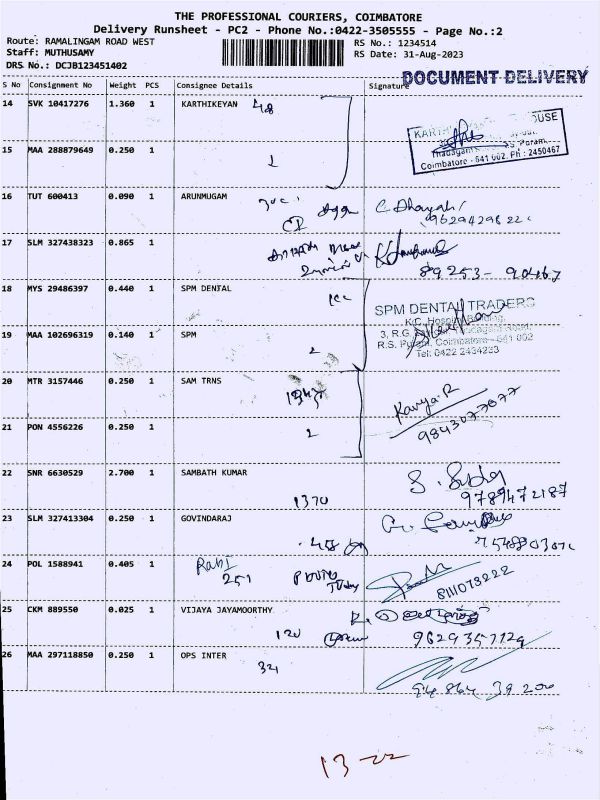 THE PROFESSIONAL COURIERS, COIMBATORE
Delivery Runsheet - PC2 - Phone No.:0422-3505555 - Page No.:2
Route: RAMALINGAM ROAD WEST
Staff: MUTHUSAMY
DRS No.: DCJB123451402
RS No.: 1234514
RS Date: 31-Aug-2023
DOCUMENT DELIVERY
S No Consignment No Weight PCS Consignee Details Signature
14 SVK 10417276 1.360 1 KARTHIKEYAN 48
KARTH OUSE
Thadagam R.S. Puram,
Coimbatore - 641 002. Ph : 2450467
15 MAA 288879649 0.250 1
2
16 TUT 600413 0.090 1 ARUNMUGAM
C. Dhayal
17 SLM 327438323 0.865 1
89253- 90467
18 MYS 29486397 0.440 1 SPM DENTAL
SPM DENTAL TRADERS
K.C. Hospital Building,
3, R.G. Thadagam Road,
R.S. Puram, Coimbatore - 641 002
Tel: 0422 2434233
19 MAA 102696319 0.140 1 SPM
2
20 MTR 3157446 0.250 1 SAM TRNS
Kavya.R
9843077077
21 PON 4556226 0.250 1
2
22 SNR 6630529 2.700 1 SAMBATH KUMAR
1370
9789472187
23 SLM 327413304 0.250 1 GOVINDARAJ
458
24 POL 1588941 0.405 1 Rabi
251
8111073222
25 CKM 889550 0.025 1 VIJAYA JAYAMOORTHY
120
9629357129
26 MAA 297118850 0.250 1 OPS INTER
321
94 864 39 200
13-22